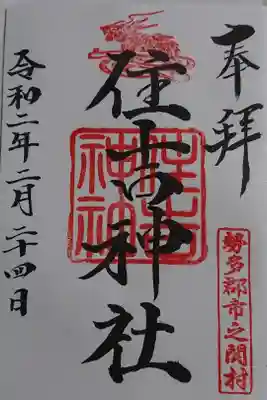 奉拝
住吉神社
住吉神社
勢多郡市之関村
令和二年二月二十四日